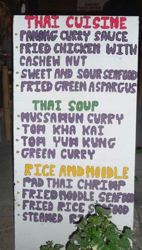 THAI CUISINE
- PANANG CURRY SAUCE
- FRIED CHICKEN WITH
CASHEW NUT
- SWEET AND SOUR SEAFOOD
- FRIED GREEN ASPARGUS
THAI SOUP
- MUSSAMUN CURRY
- TOM KHA KAI
- TOM YUM KUNG
- GREEN CURRY
RICE AND NOODLE
- PAD THAI CHRIMP
- FRIED NOODLE SEAFOOD
- FRIED RICE SEAFOOD
- STEAMED